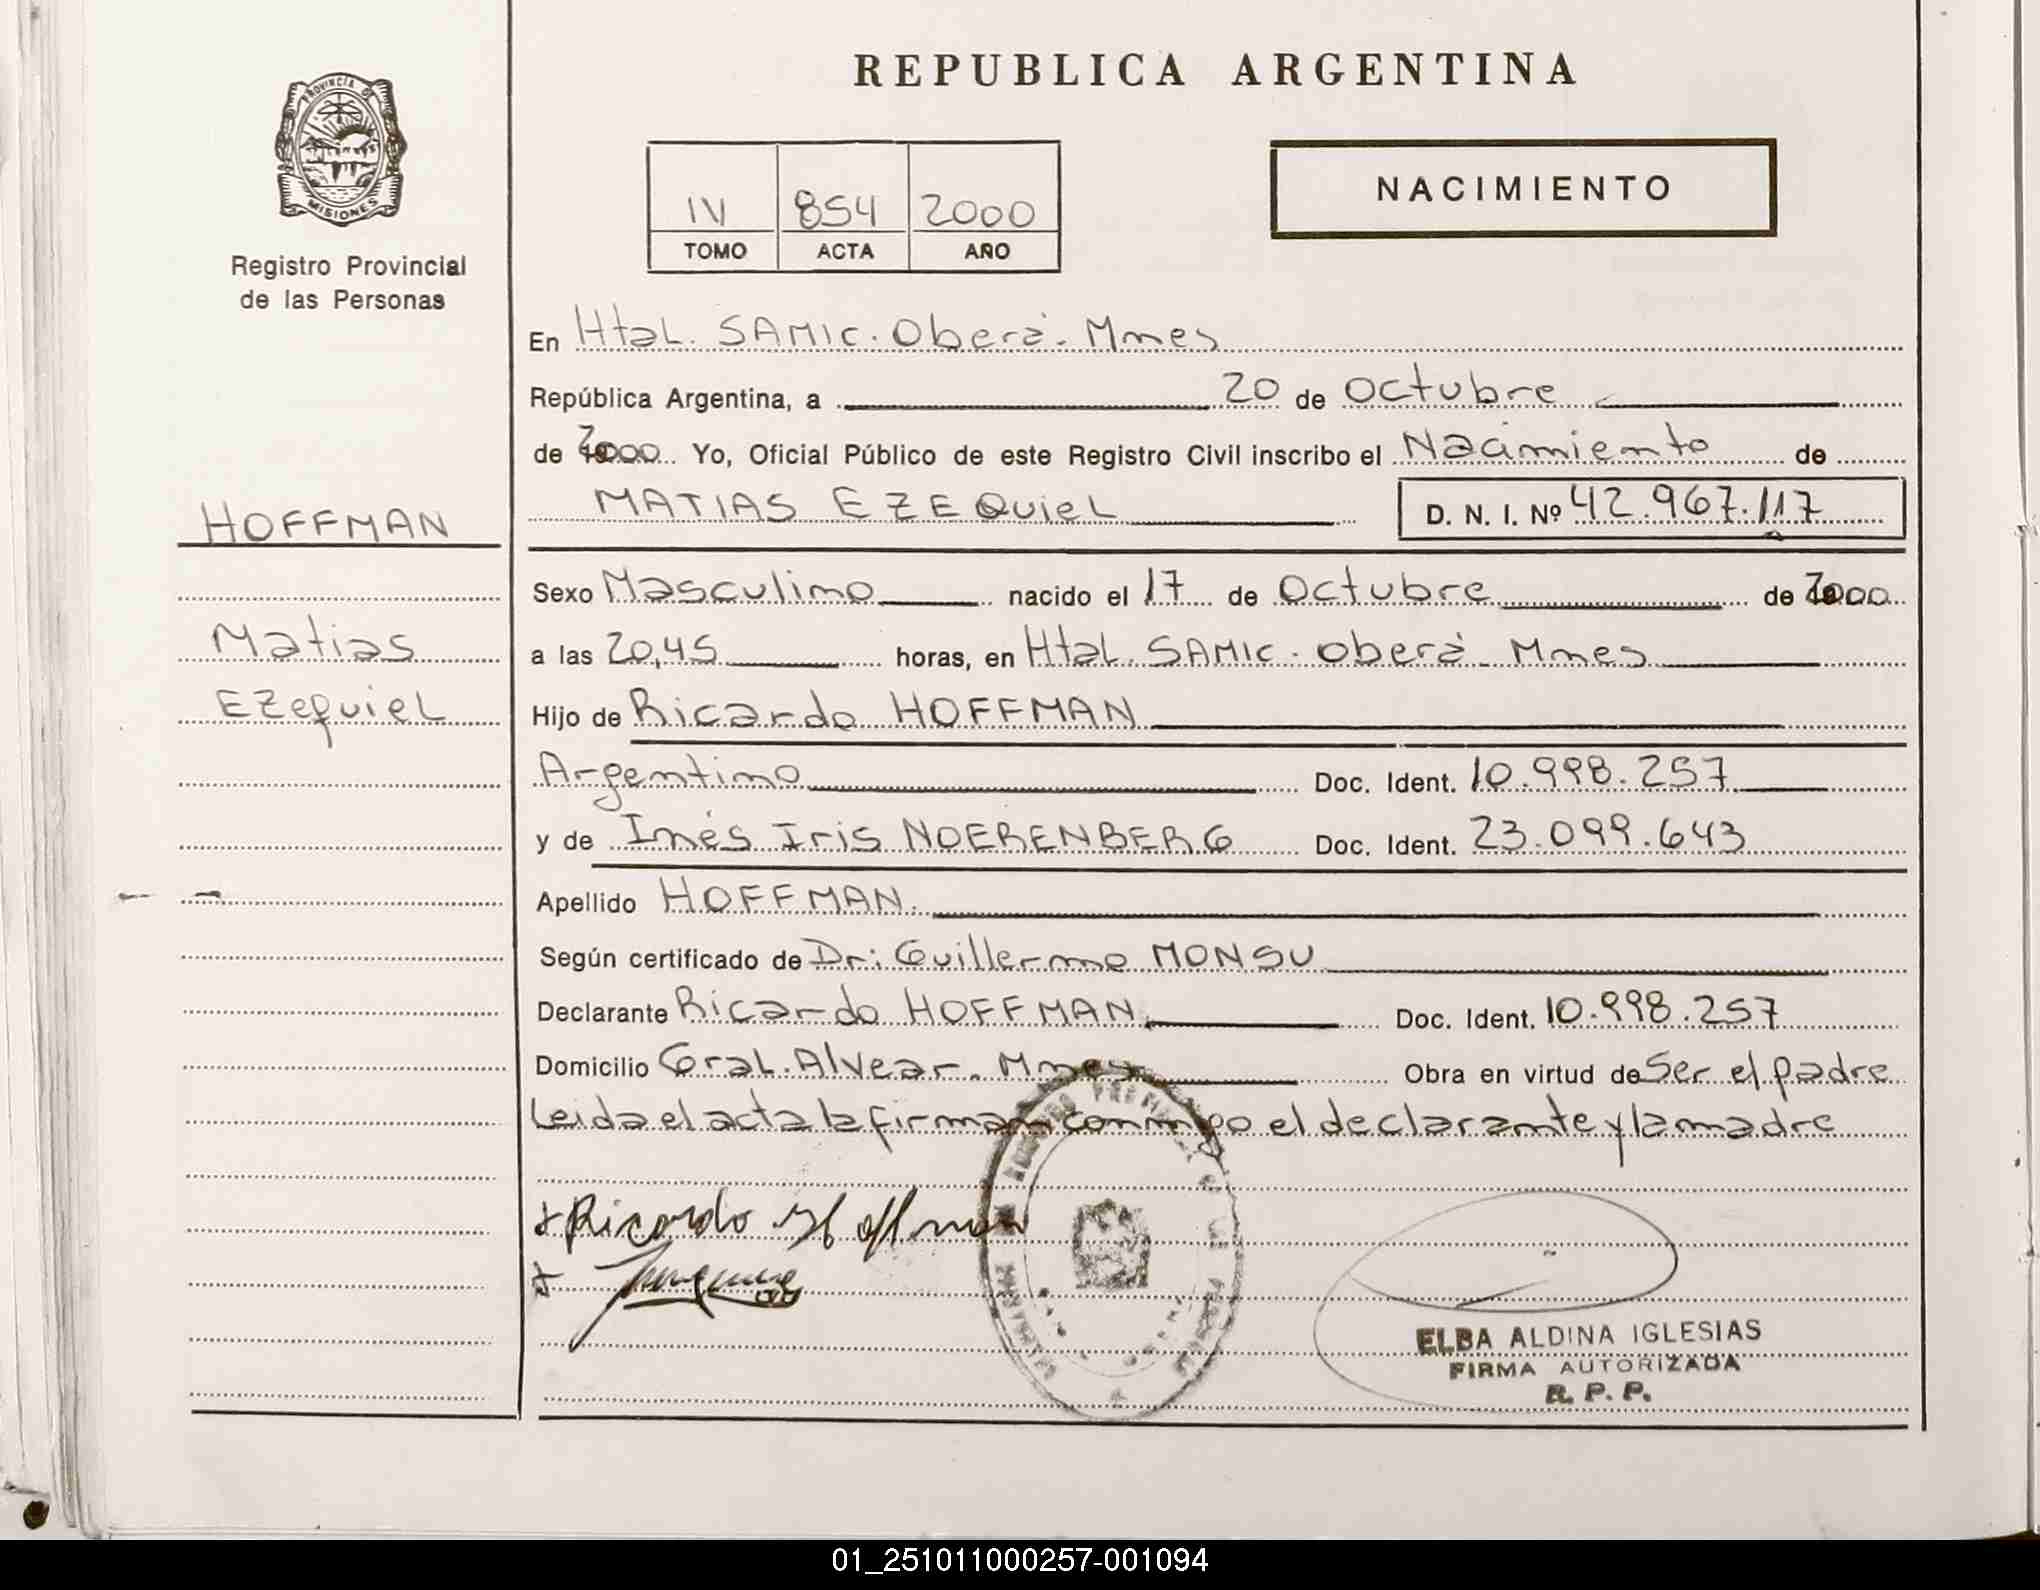 REPUBLICA ARGENTINA
PROVINCIA DE
MISIONES
Registro Provincial
de las Personas
IV 854 2000
TOMO ACTA AÑO
NACIMIENTO
En Htal. SAMIC. Oberá. Mnes
República Argentina, a 20 de Octubre
de 2000 Yo, Oficial Público de este Registro Civil inscribo el Nacimiento de
HOFFMAN
MATIAS EZEQuieL D. N. I. Nº 42.967.117
Sexo Masculino nacido el 17 de Octubre de 2000
Matias
a las 20,45 horas, en Htal. SAMIC. Oberá. Mnes
EzequieL
Hijo de Ricardo HOFFMAN
Argentino Doc. Ident. 10.998.257
y de Inés Iris NOERENBERG Doc. Ident. 23.099.643
Apellido HOFFMAN.
Según certificado de Dr: Guillermo MONSU
Declarante Ricardo HOFFMAN Doc. Ident. 10.998.257
Domicilio Gral. Alvear. Mnes Obra en virtud de Ser el padre
Leida el acta la firman conmigo el declarante y la madre
+ Ricardo Hoffman
+
ELBA ALDINA IGLESIAS
FIRMA AUTORIZADA
R. P. P.
01_251011000257-001094